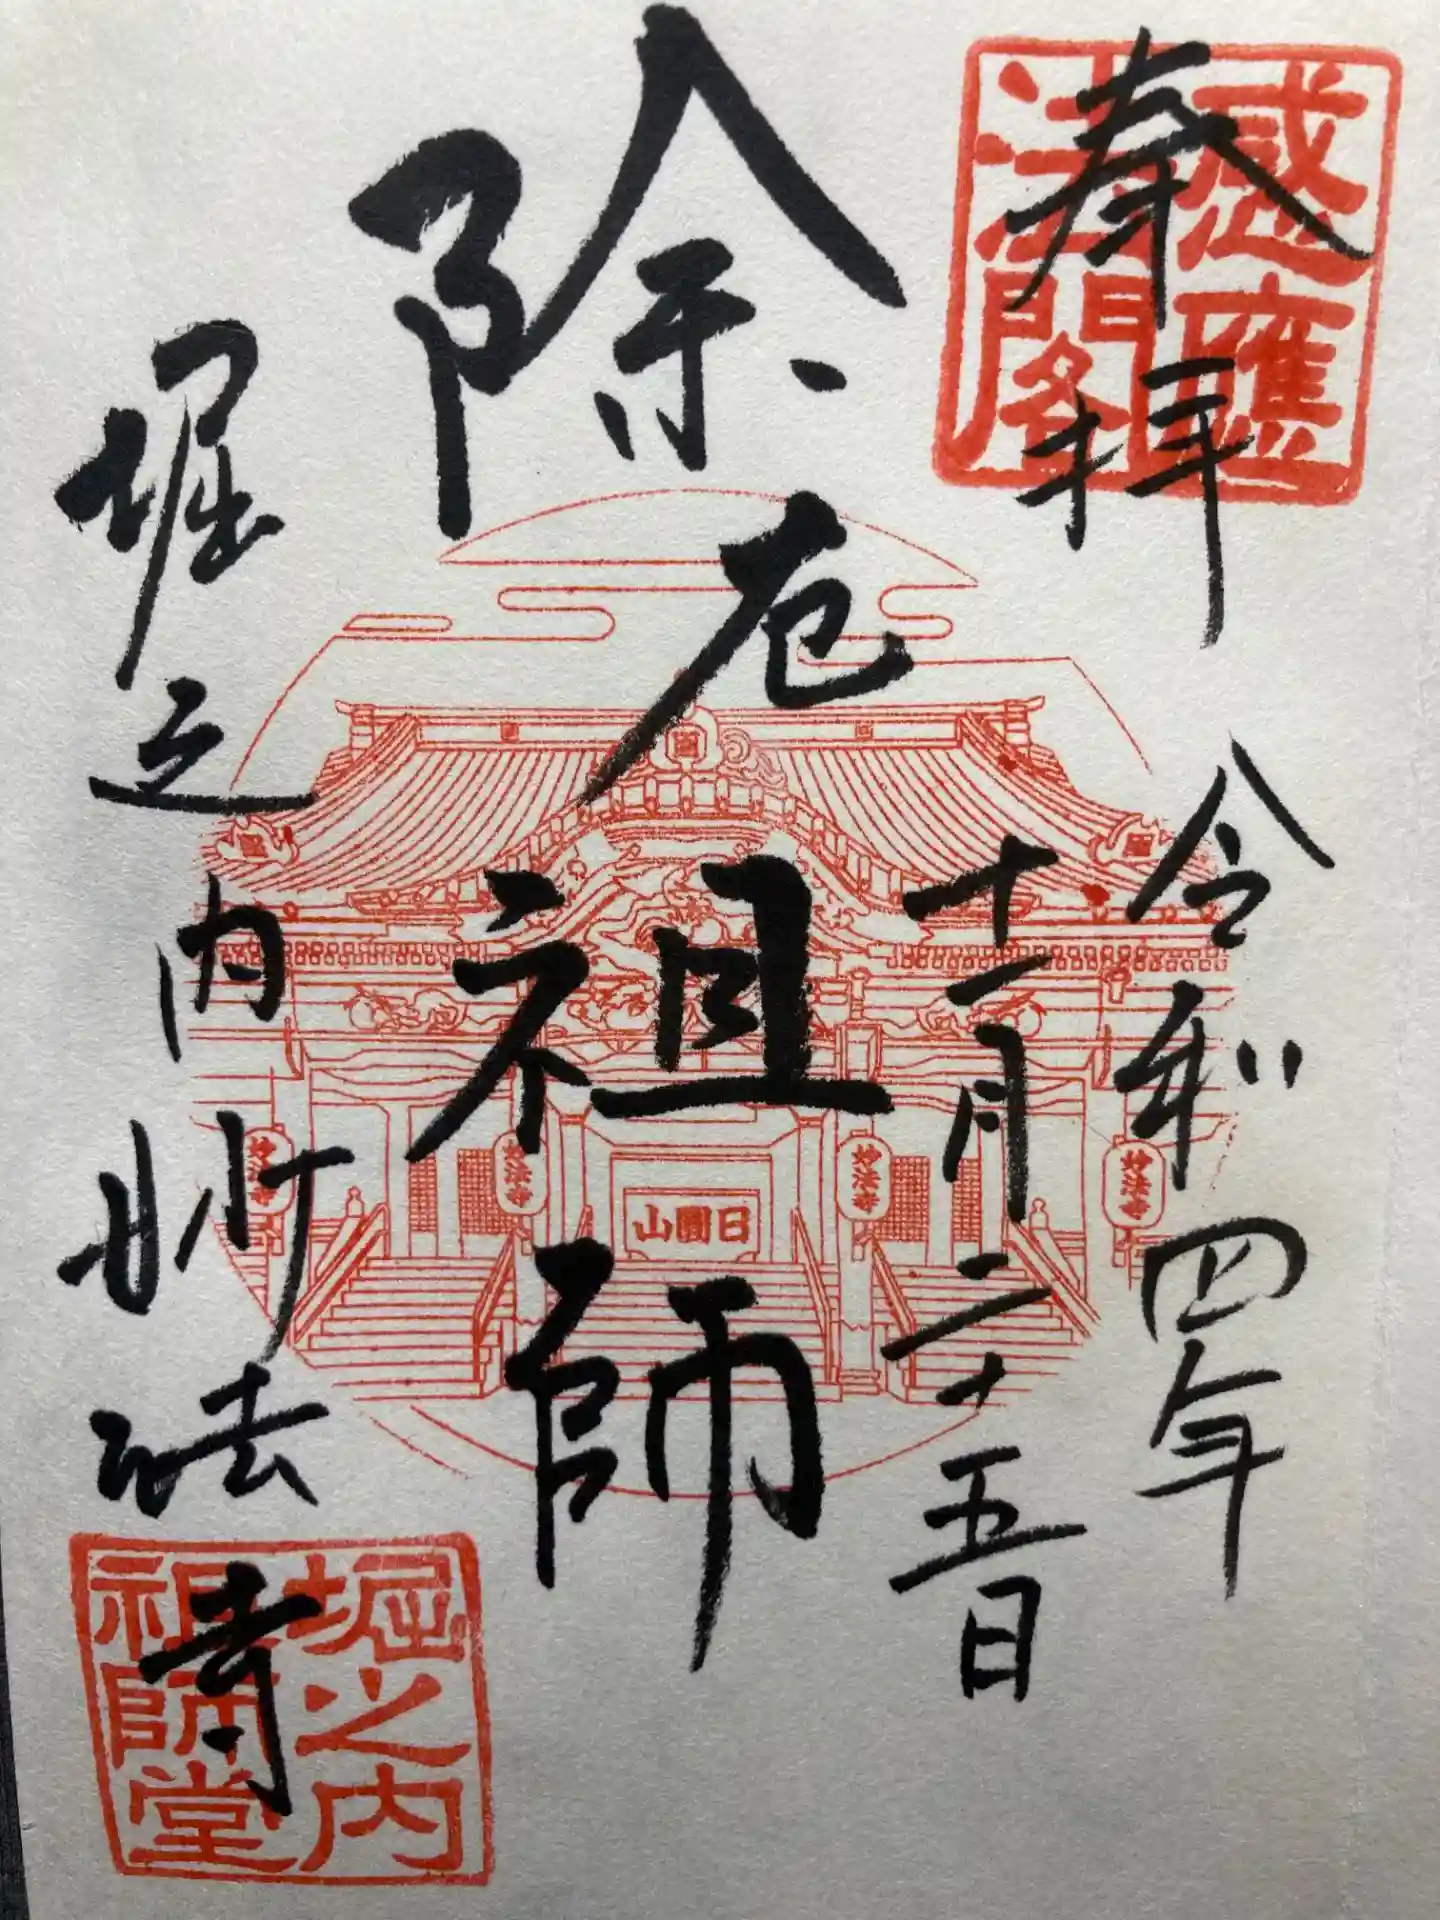 奉拝
令和四年
十一月二十五日
除厄
祖師
堀之内妙法寺
感應
法閣
日圓山
妙法寺
妙法寺
妙法寺
妙法寺
堀之内
祖師堂